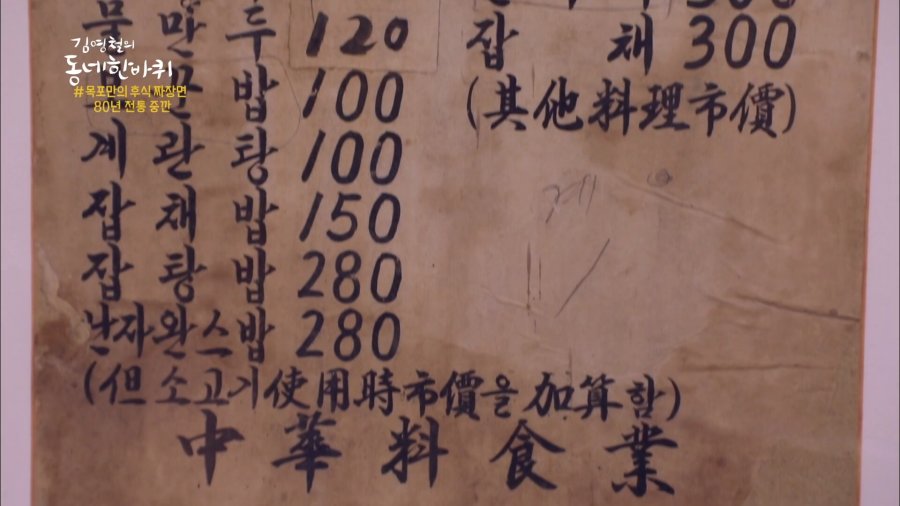 김영철의
동네한바퀴
#목포만의 후식 짜장면
80년 전통 중깐
만 두 120
밥 100
계 란 탕 100
잡 채 밥 150
잡 탕 밥 280
난자완스밥 280
(但 소고기 使用時 市價을 加算함)
잡 채 300
(其他料理市價)
中華料食業